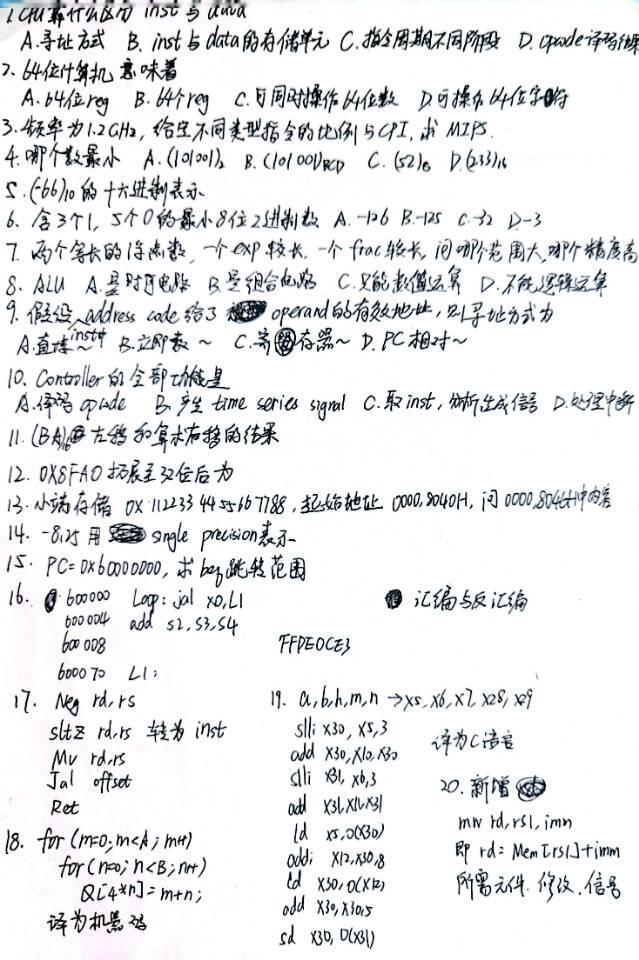 1. CPU靠什么区分 inst 与 data
A.寻址方式 B. inst与data的存储单元 C.指令周期不同阶段 D. opcode译码结果
2. 64位计算机意味着
A.64位reg B. 64个reg C.可同时操作64位数 D.可操作64位字符
3.频率为1.2GHz,给定不同类型指令的比例与CPI,求MIPS.
4.哪个数最小 A.(101001)₂ B.(101001)BCD C.(52)₈ D.(233)₁₆
5.(-66)₁₀的十六进制表示
6.含3个1,5个0的最小8位2进制数 A.-126 B.-125 C.-32 D.-3
7.两个等长的浮点数,一个exp较长,一个frac较长,问哪个范围大,哪个精度高
8. ALU A.是时序电路 B.是组合电路 C.只能数值运算 D.不能逻辑运算
9.假设inst中address code给了operand的有效地址,则寻址方式为
A.直接~ B.立即数~ C.寄存器~ D.PC相对~
10. Controller的全部功能是
A.译码opcode B.产生time series signal C.取inst,分析生成信号 D.处理中断
11.(BA)₁₆左移和算术右移的结果
12. 0X8FA0扩展至32位后为
13.小端存储 0X 11 22 33 44 55 66 7788,起始地址 0000,8040H,问0000,8046H中内容
14. -8.25用single precision表示
15. PC=0x60000000,求beq跳转范围
16. 600000 Loop: jal x0,L1 汇编与反汇编
600004 add s2,s3,s4
600008 FFDE0CE3
600070 L1:
17. Neg rd,rs
sltz rd,rs 转为inst
Mv rd,rs
Jal offset
Ret
18. for (m=0;m<A;m++)
for(n=0;n<B;n++)
Q[4*n]=m+n;
译为机器码
19. a,b,h,m,n →x5,x6,x7,x28,x29
slli x30,x5,3
add x30,x10,x30 译为C语言
slli x31,x6,3
add x31,x11,x31
ld x5,0(x30)
addi x12,x30,8
ld x30,0(x12)
add x30,x30,x5
sd x30,0(x31)
20.新增
mw rd,rs1,imm
即 rd=Mem[rs1]+imm
所需元件.修改.信号